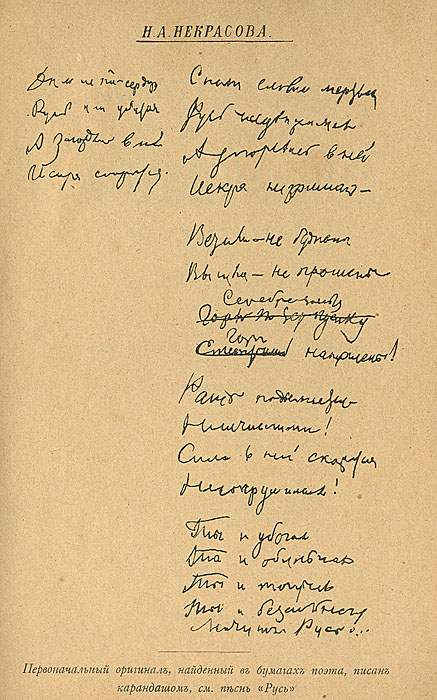 Н. А. НЕКРАСОВА.
Русь убитая
А в ней
Искра сокрытая
Спит словно мертвая
Русь недвижимая
А в ней
Искра незримая —
Встали — не бужены
Вышли — не прошены
Горы
наношены!
Рать поднимается
Неисчислимая!
Сила в ней скажется
Несокрушимая!
Ты и убогая
Ты и обильная
Ты и
Ты и бессильная
Матушка Русь!...
Первоначальный оригиналъ, найденный въ бумагахъ поэта, писанъ
карандашомъ, см. пѣснь «Русь»